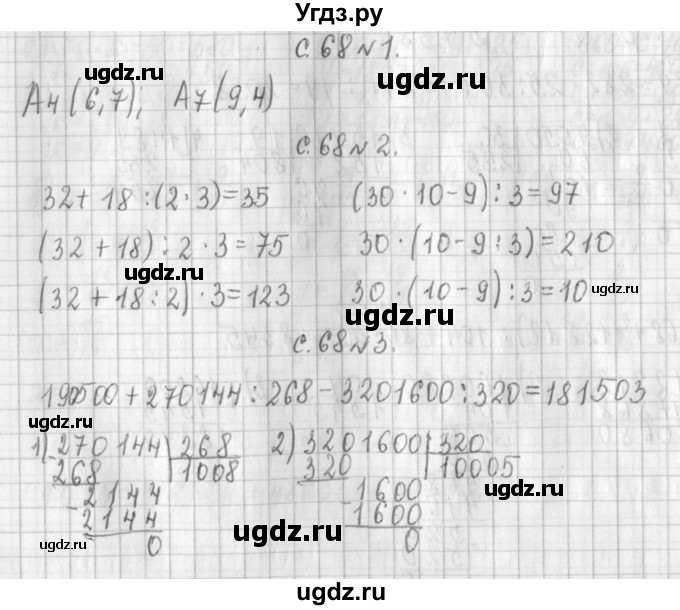 Угдз.ру
с. 68 № 1.
ugdz.ru
ugdz.ru
А4 (6,7); А7 (9,4)
ugdz.ru
с. 68 № 2.
32 + 18 : (2 · 3) = 35 (30 · 10 - 9) : 3 = 97
ugdz.ru
(32 + 18) : 2 · 3 = 75 30 · (10 - 9 : 3) = 210
ugdz.ru
(32 + 18 : 2) · 3 = 123 30 · (10 - 9) : 3 = 10
ugdz.ru
ugdz.ru
с. 68 № 3.
190500 + 270144 : 268 - 3201600 : 320 = 181503
ugdz.ru
1) 270144 268 2) 3201600 320
268 1008 320 10005
2144 1600
ugdz.ru
- 2144 - 1600
ugdz.ru
ugdz.ru
0 0
ugdz.ru